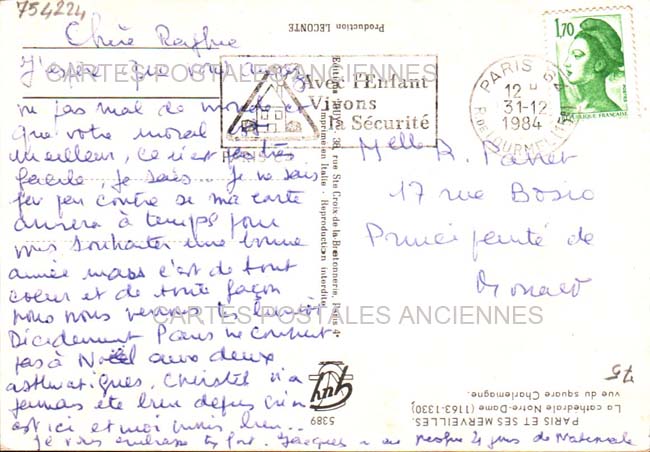 754224
Chère
J'espère que vous avez
pas mal de monde et
que votre moral est
meilleur, ce n'est pas très
facile, je sais... je ne sais
par contre si ma carte
arrivera à temps pour
vous souhaiter une bonne
année mais c'est de tout
coeur et de toute façon
nous nous verrons
Décidement Paris ne convient
pas à Noël aux deux
asthmatiques, Christel n'a
jamais été bien depuis qu'on
est ici et moi non bien...
je vous embrasse très fort. Jacques a au jours de Nationale
CARTES POSTALES ANCIENNES
CARTES POSTALES ANCIENNES
Production LECONTE
Editions "Guy", 38, rue Ste Croix de la Bretonnerie, Paris
Imprimé en Italie - Reproduction interdite
guy
5389
Avec l'Enfant
Vivons
la Sécurité
PARIS
12 H
31-12
1984
R. DE LOURMEL (15e)
1,70
REPUBLIQUE FRANÇAISE
POSTES
Melle R.
17 rue Bosio
Principauté de
Monaco
75
PARIS ET SES MERVEILLES.
La cathédrale Notre-Dame (1163-1330)
vue du square Charlemagne.